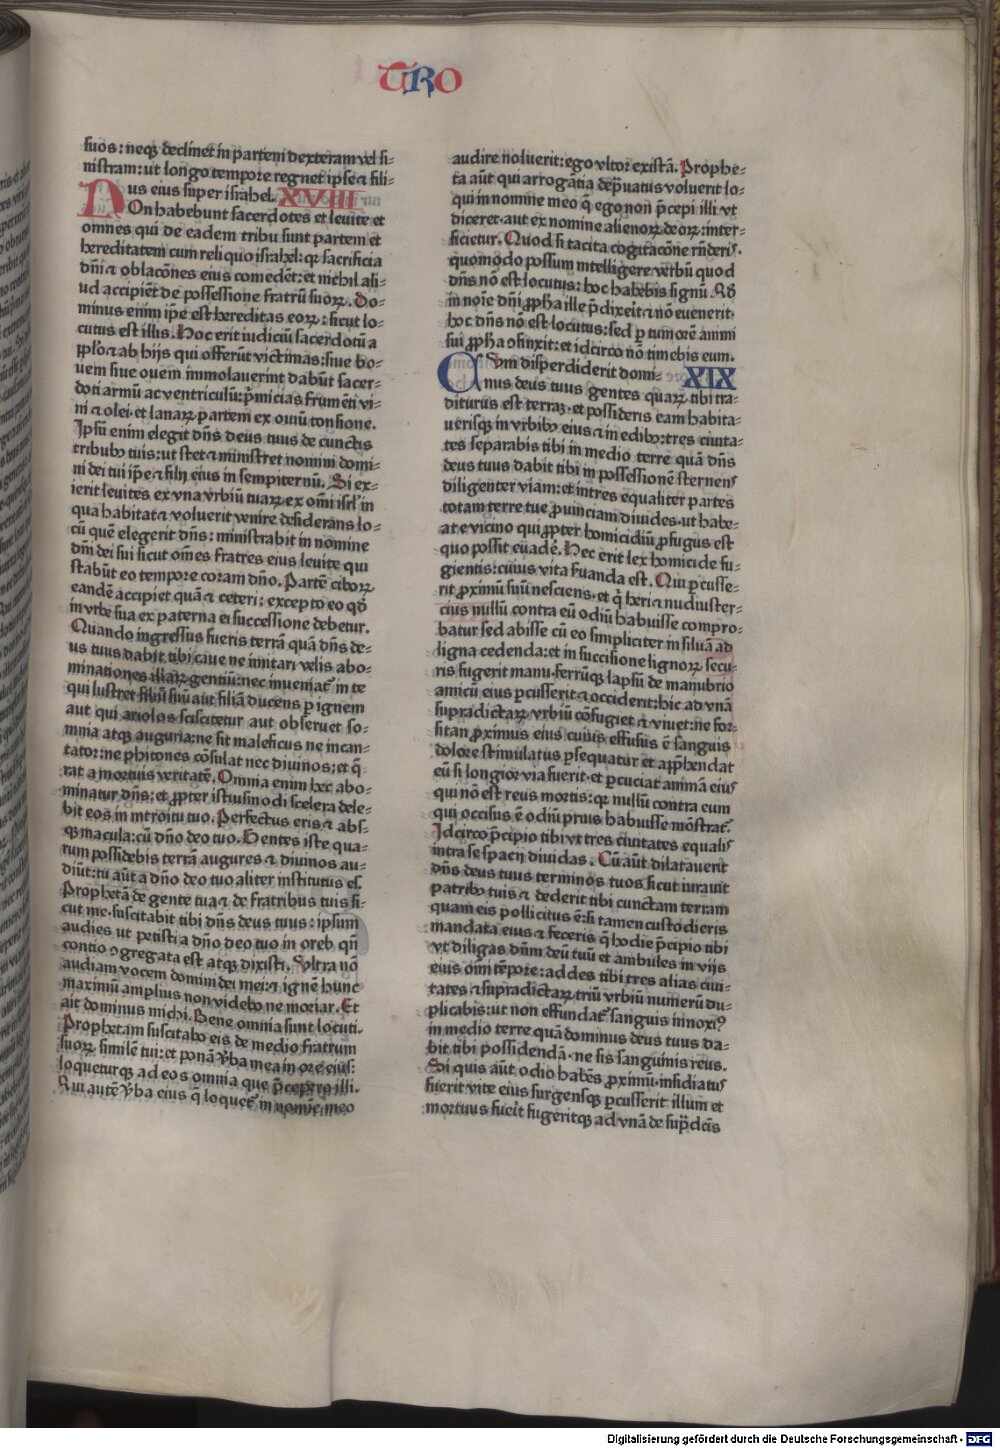 TRO
suos: neqꝫ declinet in partem dexteram vel si-
nistram: ut longo tempore regnet ipse ⁊ fili-
us eius super israhel. XVIII
Non habebunt sacerdotes et leuite et
omnes qui de eadem tribu sunt partem et
hereditatem cum reliquo israhel: qꝛ sacrificia
dn̄i ⁊ oblacōnes eius comedēt: et nichil ali-
ud accipiēt de possessione fratrū suoꝝ. Do-
minus enim ip̄e est hereditas eoꝝ: sicut lo-
cutus est illis. Hoc erit iudiciū sacerdotū a
pp̄lo ⁊ ab hijs qui offerūt victimas: siue bo-
uem siue ouem immolauerint dabūt sacer-
doti armū ac ventriculū: p̄micias frumēti vi-
ni ⁊ olei. et lanaꝝ partem ex ouiū tonsione.
Ipsū enim elegit dn̄s deus tuus de cunctis
tribubꝫ tuis: ut stet ⁊ ministret nomini domi-
ni dei tui ip̄e ⁊ filij eius in sempiternū. Si ex-
ierit leuites ex vna vrbiū tuaꝝ ex om̄i isrl̄ in
qua habitat ⁊ voluerit venire desiderans lo-
cū quē elegerit dn̄s: ministrabit in nomine
dn̄i dei sui sicut om̄es fratres eius leuite qui
stabūt eo tempore coram dn̄o. Partē ciboꝝ
eandē accipiet quā ⁊ ceteri: excepto eo qd̄
in vrbe sua ex paterna ei successione debetur.
Quando ingressus fueris terrā quā dn̄s de-
us tuus dabit tibi caue ne imitari velis abo-
minationes illaꝝ gentiū: nec inueniat᷑ in te
qui lustret filiū suū aut filiā ducens ꝑ ignem
aut qui ariolos sciscitetur aut obseruet so-
mnia atqꝫ auguria: ne sit maleficus ne incan-
tator: ne phitones cōsulat nec diuinos: et q̄-
rat a mortuis veritatē. Omnia enim hec abo-
minatur dn̄s: et ꝓpter istiusmodi scelera dele-
bit eos in introitu tuo. Perfectus eris ⁊ abs-
qꝫ macula: cū dn̄o deo tuo. Gentes iste qua-
rum possidebis terrā augures ⁊ diuinos au-
diūt: tu aūt a dn̄o deo tuo aliter institutus es.
Prophetā de gente tua ⁊ de fratribus tuis si-
cut me. suscitabit tibi dn̄s deus tuus: ipsum
audies ut petisti a dn̄o deo tuo in oreb qn̄
contio ꝯgregata est atqꝫ dixisti. Vltra nō
audiam vocem domini dei mei: ⁊ ignē hunc
maximū amplius non videbo ne moriar. Et
ait dominus michi. Bene omnia sunt locuti.
Prophetam suscitabo eis de medio fratrum
suoꝝ similē tui: et ponā v̄ba mea in ore eius:
loqueturqꝫ ad eos omnia que p̄cepero illi.
Qui autē v̄ba eius q̄ loquet᷑ in nomīe meo
audire noluerit: ego vltor existā. Prophe-
ta aūt qui arrogātia dep̄uatus voluerit lo-
qui in nomine meo q̄ ego non p̄cepi illi vt
diceret. aut ex nomine alienoꝝ deoꝝ: inter-
ficietur. Quod si tacita cogitacōne rn̄deris.
quomodo possum intelligere verbū quod
dn̄s nō est locutus: hoc habebis signū. Qd̄
in noīe dn̄i ꝓpha ille p̄dixeit ⁊ nō euenerit.
hoc dn̄s nō est locutus: sed ꝑ tumorē animi
sui ꝓpha ꝯfinxit: et idcirco nō timebis eum.
Cum disperdiderit domi- XIX
nus deus tuus gentes quaꝝ tibi tra-
diturus est terrā. et possideris eam habita-
uerisqꝫ in vrbibꝫ eius ⁊ in edibꝫ: tres ciuita-
tes separabis tibi in medio terre quā dn̄s
deus tuus dabit tibi in possessionē sternens
diligenter viam: et in tres equaliter partes
totam terre tue ꝓuinciam diuides. ut habe-
at e vicino qui ꝓpter homicidiū ꝓfugus est
quo possit euadē. Hec erit lex homicide fu-
gientis: cuius vita s̄uanda est. Qui ꝑcusse-
rit ꝓximū suū nesciens. et q̄ heri ⁊ nudiuster-
cius nullū contra eū odiū habuisse compro-
batur sed abisse cū eo simpliciter in siluā ad
ligna cedenda: et in succisione lignoꝝ secu-
ris fugerit manu. ferrūqꝫ lapsū de manubrio
amicū eius ꝑcusserit ⁊ occiderit: hic ad vnā
supradictaꝝ vrbiū cōfugiet ⁊ viuet: ne for-
sitan ꝓximus eius cuius effusus ē sanguis
dolore stimulatus ꝑsequatur et app̄hendat
eū si longior via fuerit. et ꝑcuciat animā eius
qui nō est reus mortis: qꝛ nullū contra eum
qui occisus ē odiū prius habuisse mōstrat᷑.
Idcirco p̄cipio tibi vt tres ciuitates equalis
intra se spacij diuidas. Cū aūt dilatauerit
dn̄s deus tuus terminos tuos sicut iurauit
patribꝫ tuis ⁊ dederit tibi cunctam terram
quam eis pollicitus ē: si tamen custodieris
mandata eius ⁊ feceris q̄ hodie p̄cipio tibi
vt diligas dn̄m deū tuū et ambules in vijs
eius om̄i tēpore: addes tibi tres alias ciui-
tates ⁊ supradictaꝝ triū vrbiū numerū du-
plicabis: ut non effundat᷑ sanguis innoxiꝰ
in medio terre quā dominus deus tuus da-
bit tibi possidendā. ne sis sanguinis reus.
Si quis aūt odio habēs ꝓximū. insidiatus
fuerit vite eius surgensqꝫ ꝑcusserit illum et
mortuus fueit fugeritqꝫ ad vnā de sup̄dcīs
Digitalisierung gefördert durch die Deutsche Forschungsgemeinschaft - DFG